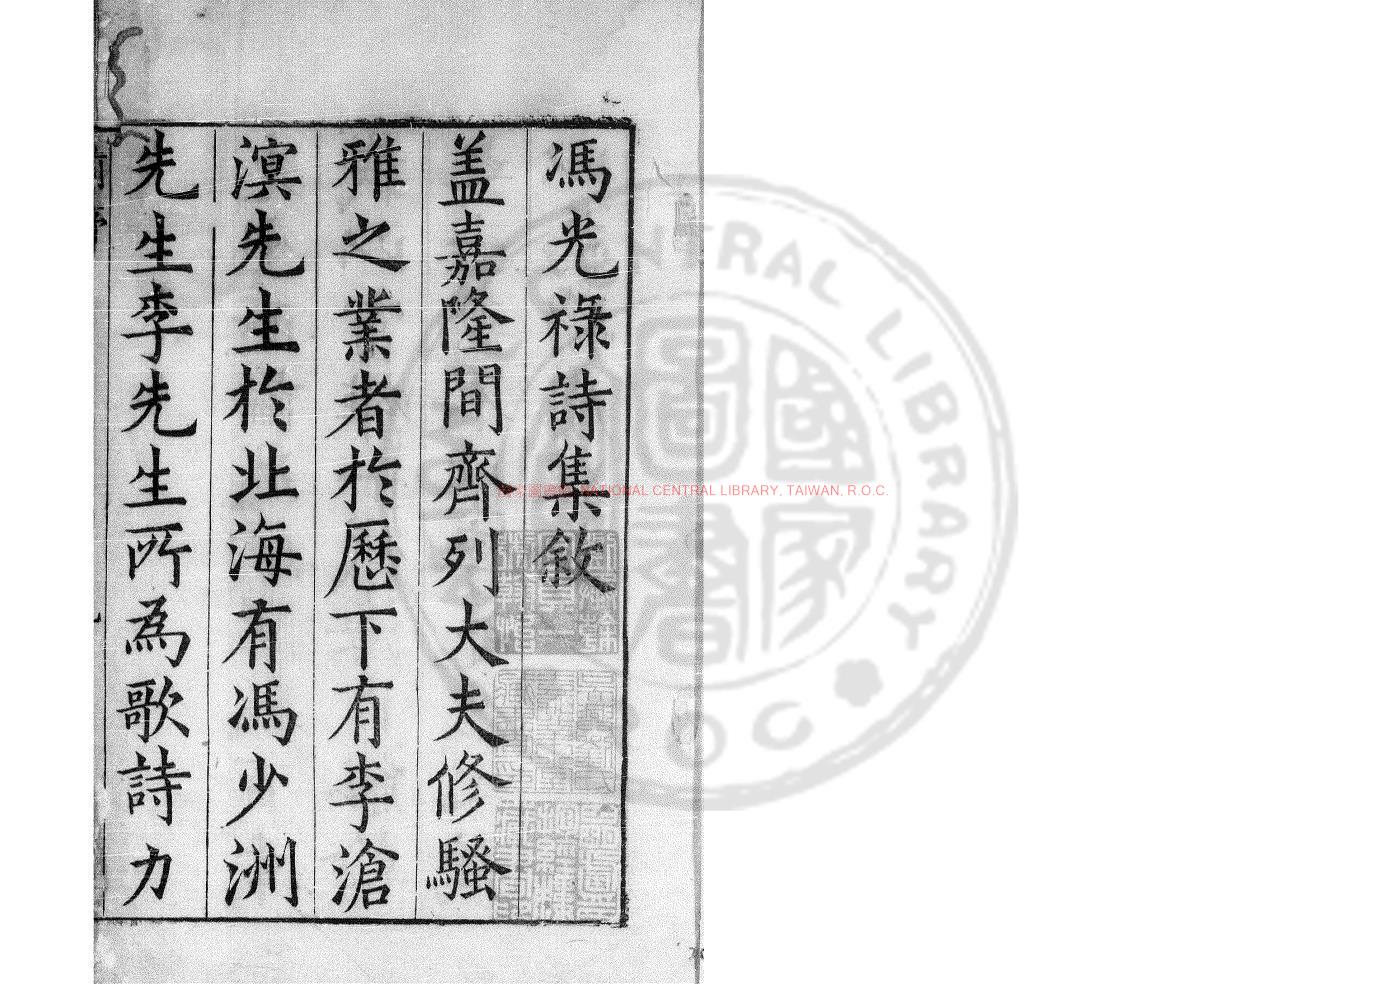 馮光祿詩集敘
盖嘉隆間齊列大夫修騷
雅之業者於歷下有李滄
溟先生於北海有馮少洲
先生李先生所為歌詩力
國家圖書館 NATIONAL CENTRAL LIBRARY, TAIWAN, R.O.C.
國家圖書
CENTRAL LIBRARY
ROC